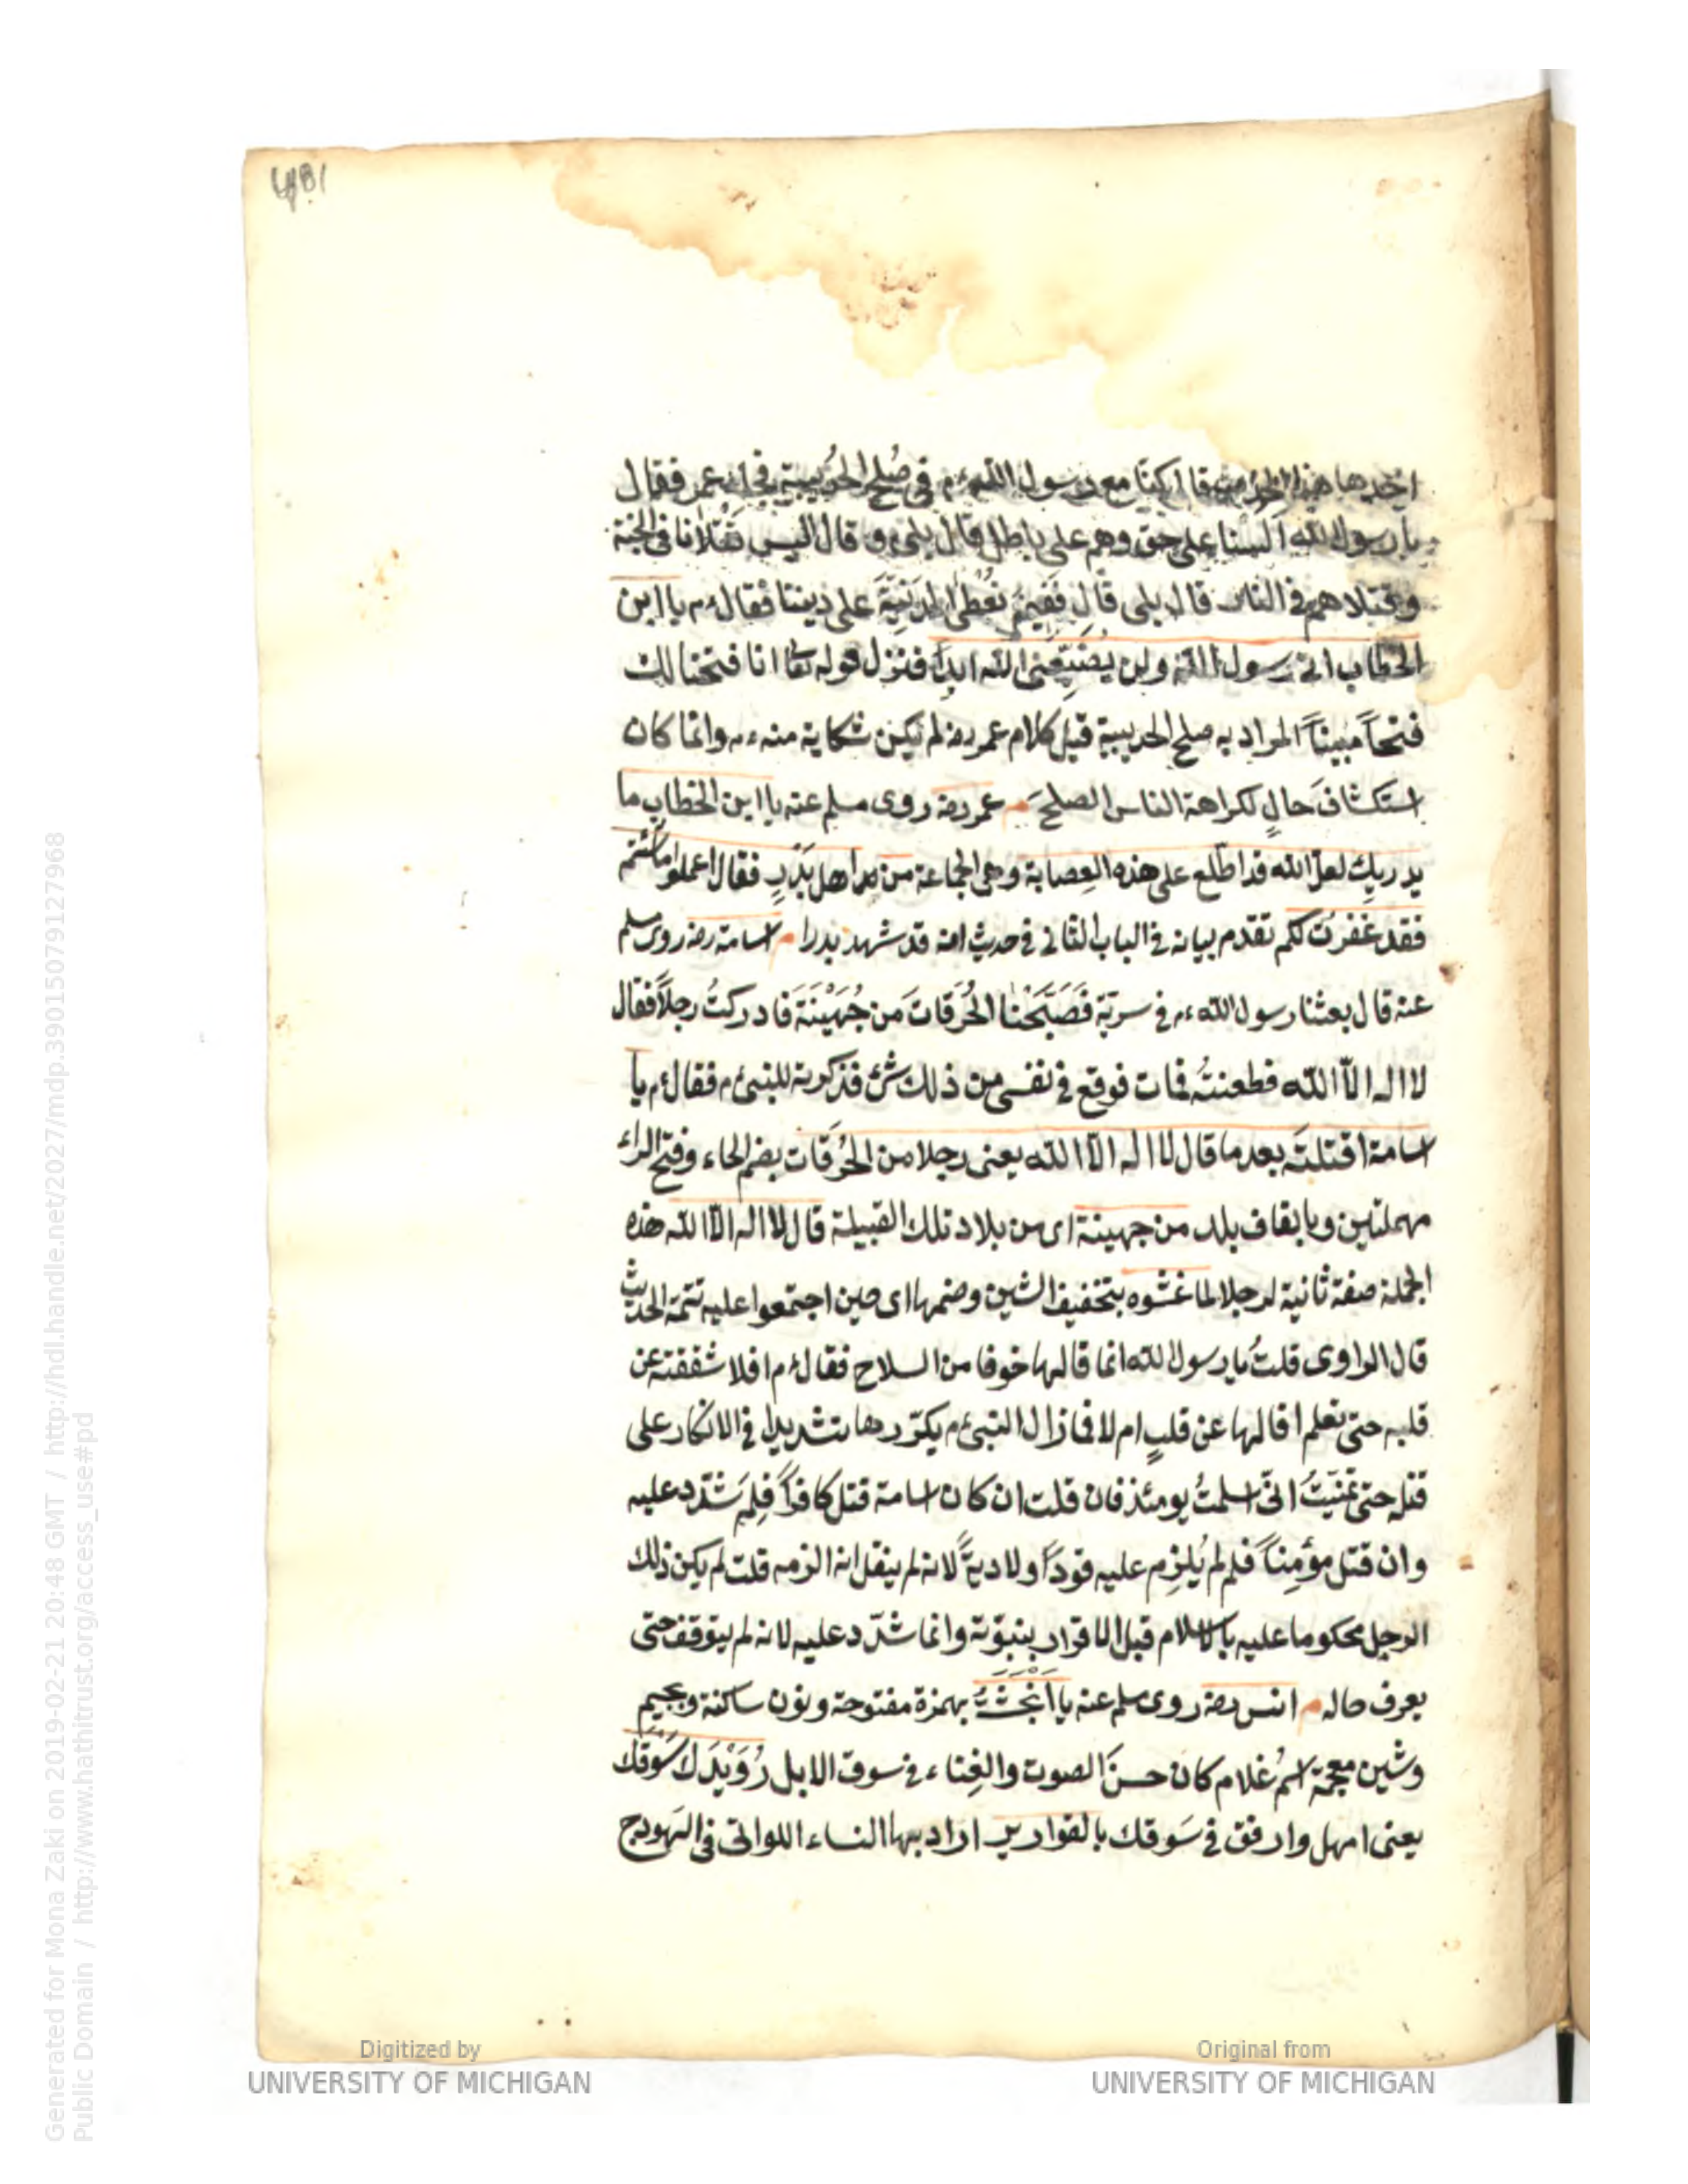 مع رسول الله ءم في صُلح الحُدَيبية فجاء عمر فقال
يا رسول الله ألسنا على حق وهم على باطل قال بلى ءم و قال اليس قَتْلانا في الجنة
وقتلاهم في النار قال بلى قال فَفِيمَ نُعْطَى الدَنِيَّةَ على ديننا فقال ءم يا ابن
الخطاب انى رسول الله ولن يُضَيِّعَنى الله ابدًا فنزل قوله تعا انا فتحنا لك
فتحاً مبيناً المراد به صلح الحديبية قيل كلام عمر رضه لم يكن شكاية منه ءم وانما كان
استكشافَ حالٍ لكراهة الناس الصلحَ م عمر رضه روى مسلم عنه يا ابن الخطاب ما
يدريك لعل الله قد اطّلع على هذه العِصابة وهى الجماعة من اهل بَدْرٍ فقال اعملوا ما شئتم
فقد غفرتُ لكم تقدم بيانه فى الباب الثانى فى حديث انه قد شهد بدرا م اسامة رضه روى مسلم
عنه قال بعثنا رسول الله ءم فى سريّة فَصَبَّحْنَا الحُرَقاتَ من جُهَيْنَةَ فادركتُ رجلاً فقال
لا اله الّا الله فطعنتُه فمات فوقع فى نفسى من ذلك شئ فذكرته للنبى ءم فقال ءم يا
اسامة اقتلتَه بعد ما قال لا اله الّا الله يعنى رجلا من الحُرَقات بضم الحاء وفتح الراء
مهملتين وبالقاف بلد من جهينة اى من بلاد تلك القبيلة قال لا اله الّا الله هذه
الجملة صفة ثانية لرجلا لما غشوه بتخفيف الشين وضمها اى حين اجتمعوا عليه تتمة الحديث
قال الراوى قلتُ يا رسول الله انما قالها خوفا من السلاح فقال ءم افلا شققته عن
قلبه حتى تعلم اقالها عن قلبٍ ام لا فما زال النبى ءم يكرّرها تشديدا فى الانكار على
قتله حتى تمنّيتُ انّى اسلمتُ يومئذ فان قلت ان كان اسامة قتل كافراً فلِمَ شدّد عليه
وان قتل مؤمِناً فلم لم يُلزِم عليه قوداً ولا ديةً لانه لم ينقل انه الزمه قلت لم يكن ذلك
الرجل محكوما عليه بالاسلام قبل الاقرار بنبوّته وانما شدّد عليه لانه لم يتوقف حتى
يعرف حاله م انس رضه روى مسلم عنه يا اَنْجَشَةُ بهمزة مفتوحة ونون ساكنة وبجيم
وشين معجمة اسمُ غلام كان حسنَ الصوت والغِناء فى سوق الابل رُوَيْدَك سَوْقَك
يعنى امهل وارفق فى سَوقك بالقوارير اراد بها النساء اللواتى فى الهودج
Digitized by
UNIVERSITY OF MICHIGAN
Original from
UNIVERSITY OF MICHIGAN
Generated for Mona Zaki on 2019-02-21 20:48 GMT / http://hdl.handle.net/2027/mdp.39015079127968
Public Domain / http://www.hathitrust.org/access_use#pd